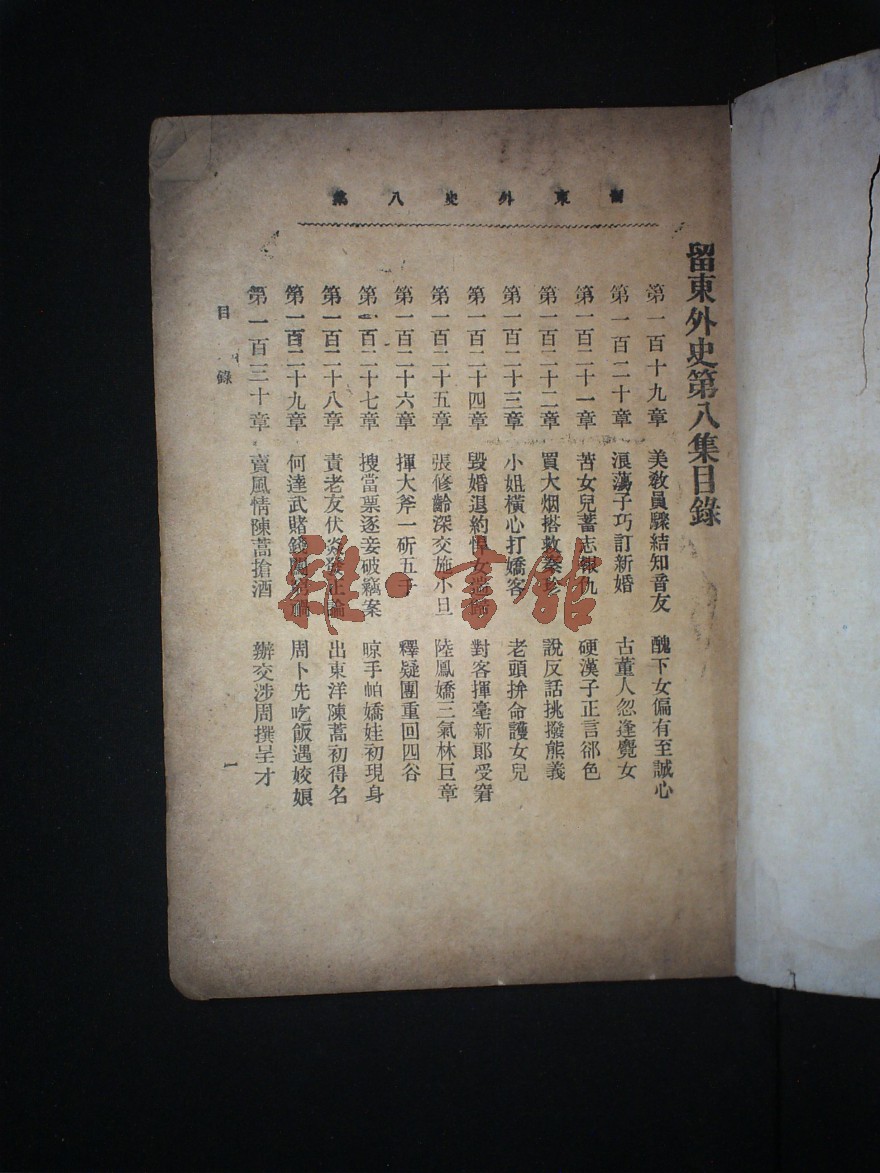 留東外史第八集
留東外史第八集目錄
第一百十九章 美教員驟結知音友 醜下女偏有至誠心
第一百二十章 浪蕩子巧訂新婚 古董人忽逢魔女
第一百二十一章 苦女兒蓄志報仇 硬漢子正言卻色
第一百二十二章 買大烟搭救秦珍 說反話挑撥熊義
第一百二十三章 小姐橫心打嬌客 老頭拚命護女兒
第一百二十四章 毀婚退約悍女 對客揮毫新郎受窘
第一百二十五章 張修齡深交施小旦 陸鳳嬌三氣林巨章
第一百二十六章 揮大斧一斫五千 釋疑團重回四谷
第一百二十七章 搜當票逐妾破竊案 晾手帕嬌娃初現身
第一百二十八章 責老友伏焱發正論 出東洋陳蒿初得名
第一百二十九章 何達武賭錢 周卜先吃飯遇姣娘
第一百三十章 賣風情陳蒿搶酒 辦交涉周撰呈才
目錄
1
雜·書館